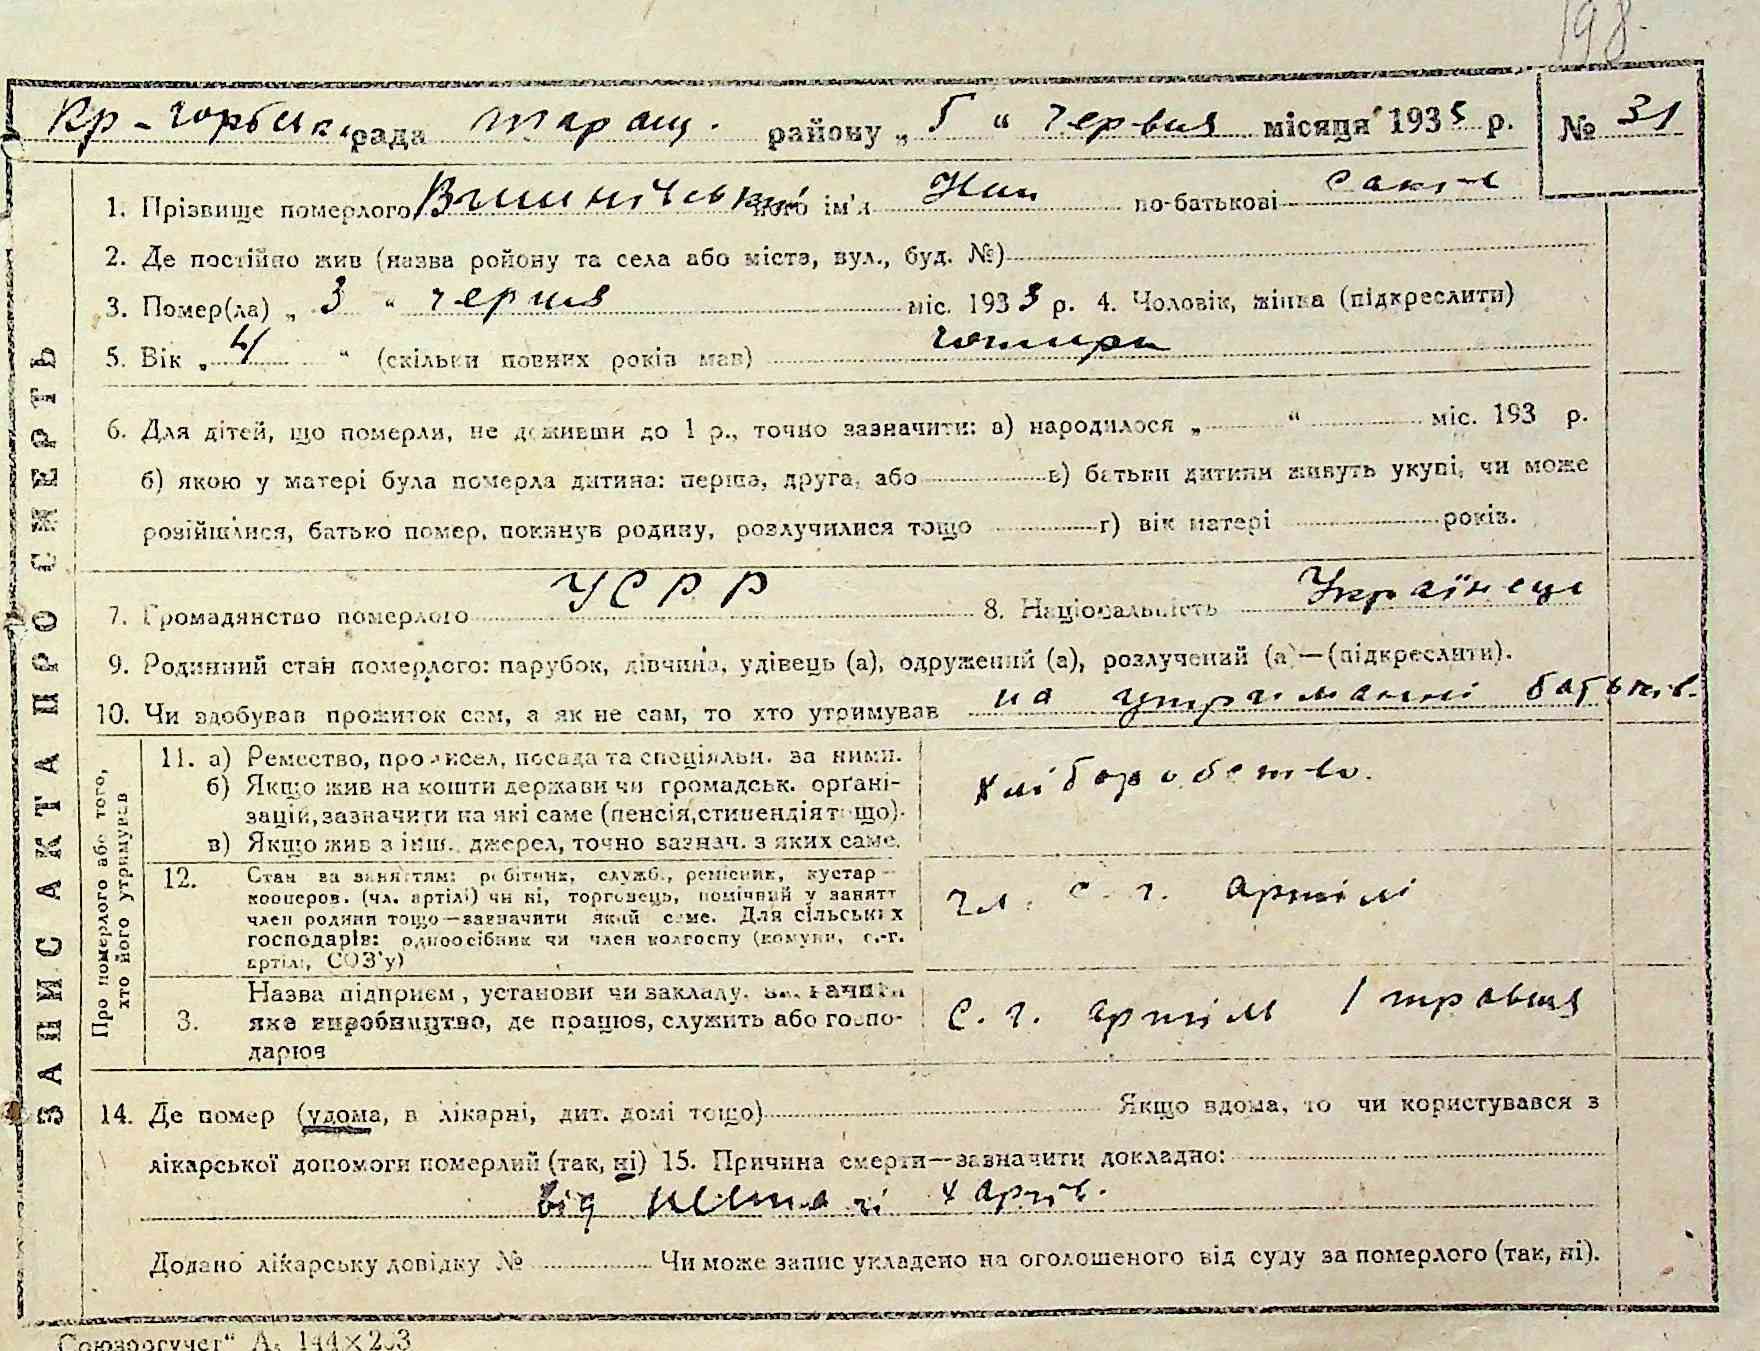 198.
Кр-Горбик. рада Таращ. району „ 5 “ червня місяця 1933 р. № 31
1. Прізвище померлого його ім'я по-батькові
2. Де постійно жив (назва ройону та села або міста, вул., буд. №)
3. Помер(ла) „ 3 “ червня міс. 1933 р. 4. Чоловік, жінка (підкреслити)
5. Вік „ 4 “ (скільки повних років мав) чотири
6. Для дітей, що померли, не доживши до 1 р., точно зазначити: а) народилося „ “ міс. 193 р.
б) якою у матері була померла дитина: перша, друга, або в) батьки дитини живуть укупі, чи може
розійшлися, батько помер, покинув родину, розлучилися тощо г) вік матері років.
7. Громадянство померлого УСРР 8. Національність Українець
9. Родинний стан померлого: парубок, дівчина, удівець (а), одружений (а), розлучений (а)—(підкреслити).
10. Чи здобував прожиток сам, а як не сам, то хто утримував на утриманні батьків.
ЗАПИС АКТА ПРО СМЕРТЬ
Про померлого або того,
хто його утримував
11. а) Ремество, промисел, посада та спеціяльн. за ними.
б) Якщо жив на кошти держави чи громадськ. органі-
зацій, зазначити на які саме (пенсія, стипендія тощо).
в) Якщо жив з інш. джерел, точно зазнач. з яких саме.
хліборобство.
12. Стан за заняттям: робітник, служб., ремісник, кустар—
кооперов. (чл. артілі) чи ні, торговець, помічний у занятт
член родини тощо—зазначити який саме. Для сільських
господарів: одноосібник чи член колгоспу (комуни, с.-г.
артілі, СОЗ'у)
чл. с. г. артілі
3. Назва підприєм, установи чи закладу. зазначити
яке виробництво, де працює, служить або госпо-
дарює
с. г. артіль 1 травня
14. Де помер (удома, в лікарні, дит. домі тощо) Якщо вдома, то чи користувався з
лікарської допомоги померлий (так, ні) 15. Причина смерти—зазначити докладно:
від нестачі харчів.
Додано лікарську довідку № Чи може запис укладено на оголошеного від суду за померлого (так, ні).
„Союзоргучет“ А. 144×203